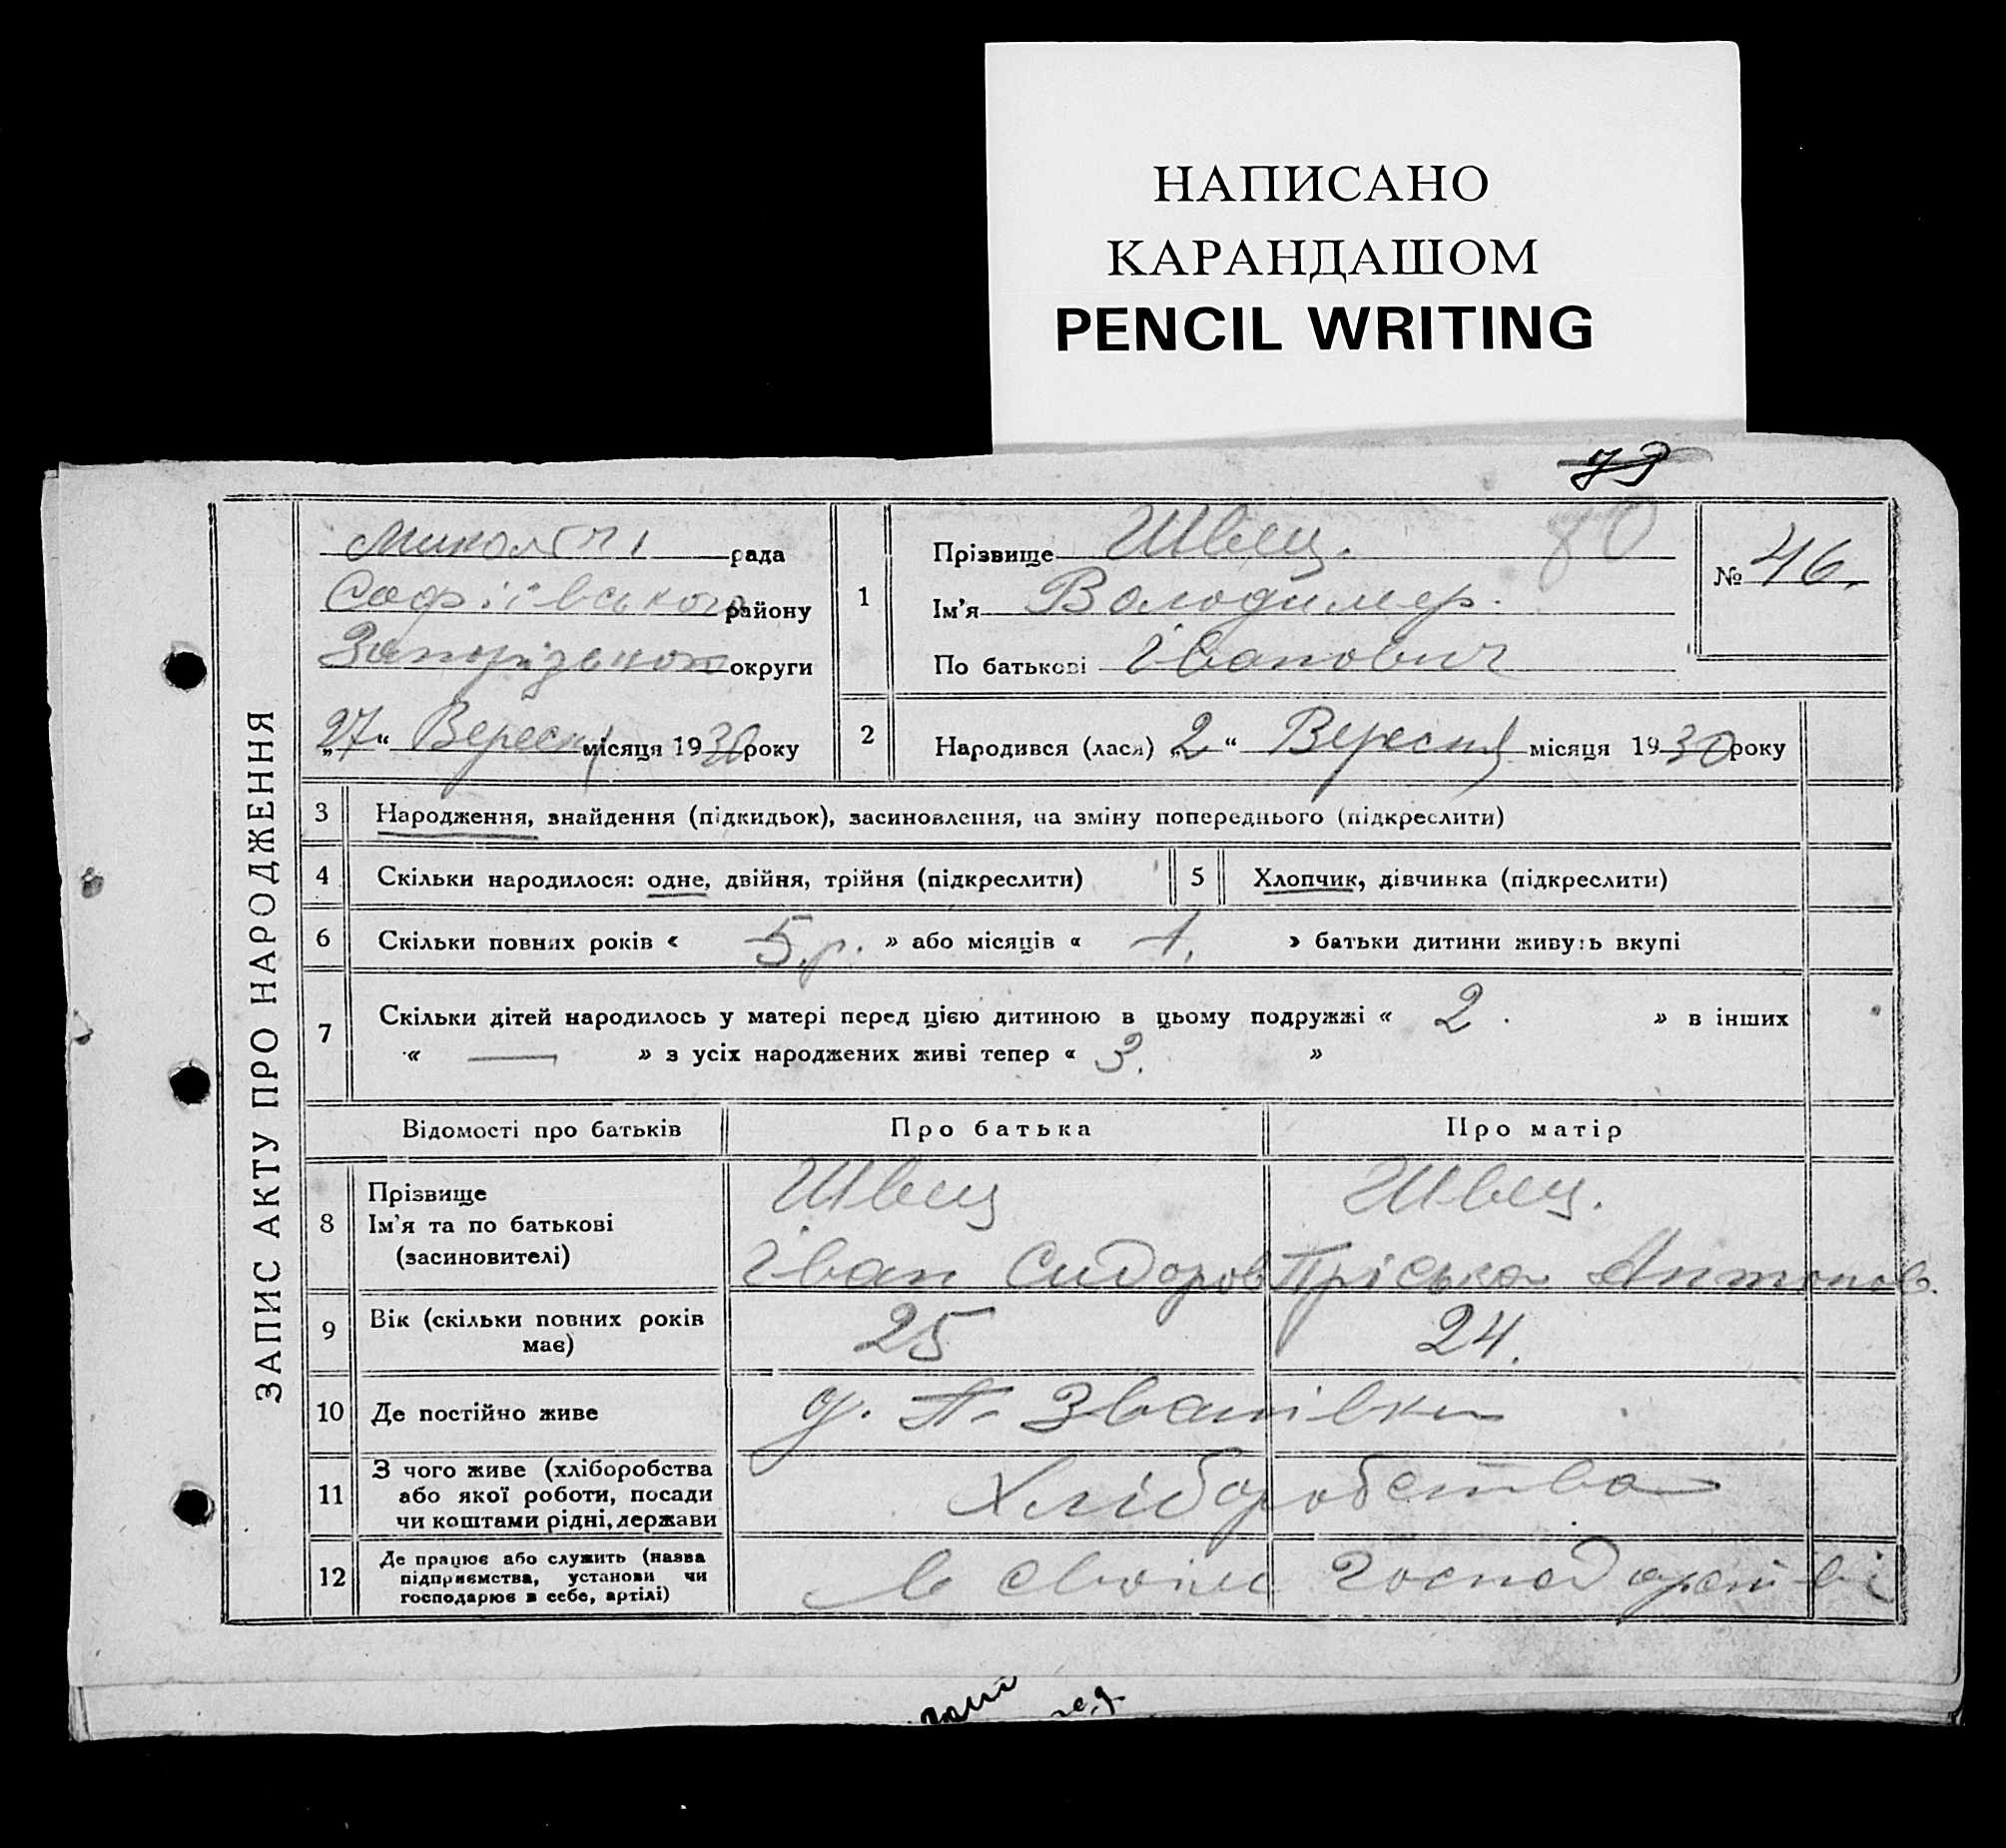 НАПИСАНО
КАРАНДАШОМ
PENCIL WRITING
ЗАПИС АКТУ ПРО НАРОДЖЕННЯ
рада
Софіївського району
Запорізької округи
„27“ Вересня місяця 1930 року
1
Прізвище Швец. 80
Ім'я Володимер.
По батькові Іванович
№ 46.
2
Народився (лася) „2“ Вересня місяця 1930 року
3 Народження, знайдення (підкидьок), засиновлення, на зміну попереднього (підкреслити)
4 Скільки народилося: одне, двійня, трійня (підкреслити) 5 Хлопчик, дівчинка (підкреслити)
6 Скільки повних років « 5 р. » або місяців « 1. » батьки дитини живуть вкупі
7 Скільки дітей народилось у матері перед цією дитиною в цьому подружжі « 2. » в інших
« — » з усіх народжених живі тепер « 3. »
Відомості про батьків Про батька Про матір
8 Прізвище Швец Швец.
Ім'я та по батькові Іван Сидоров Пріська Антонов.
(засиновителі)
9 Вік (скільки повних років має) 25 24.
10 Де постійно живе
11 З чого живе (хліборобства або якої роботи, посади чи коштами рідні, держави Хліборобства
12 Де працює або служить (назва підприємства, установи чи господарює в себе, артілі) в своїм господарстві